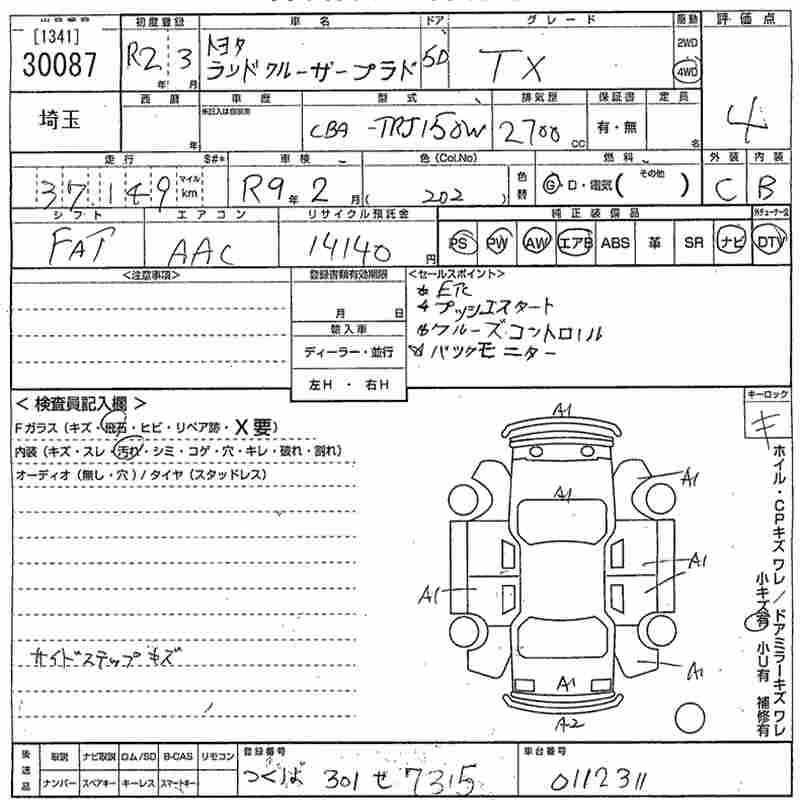 [1341]
30087
初度登録
R2年 3月
車名
トヨタ
ランドクルーザープラド
ドア
5D
グレード
TX
駆動
2WD
4WD
評価点
4
埼玉
西暦
年
車歴
未記入は自家用
型式
CBA-TRJ150W
排気量
2700 CC
保証書
有・無
定員
名
走行 S#*
37,149 マイル km
車検
R9年 2月
色(Col.No)
( 202 )
色替
燃料
G・D・電気( その他 )
外装
C
内装
B
シフト
FAT
エアコン
AAC
リサイクル預託金
14140円
純正装備品
PS PW AW エアB ABS 革 SR ナビ
DTV
<注意事項>
登録書類有効期限
月 日
輸入車
ディーラー・並行
左H・右H
<セールスポイント>
* ETC
* プッシュスタート
* クルーズコントロール
* バックモニター
<検査員記入欄>
Fガラス(キズ・飛石・ヒビ・リペア跡・X要)
内装(キズ・スレ・汚れ・シミ・コゲ・穴・キレ・破れ・割れ)
オーディオ(無し・穴)/タイヤ(スタッドレス)
サイドステップキズ
キーロック
キ
A1
A1
A1
A1
A1
A1
A1
A2
ホイル・CPキズ ワレ/ドアミラーキズ ワレ
小キズ有 小U有 補修有
後送品
取説 ナビ取説 ロム/SD B-CAS リモコン
ナンバー スペアキー キーレス スマートキー
登録番号
つくば 301 せ 7315
車台番号
0112311